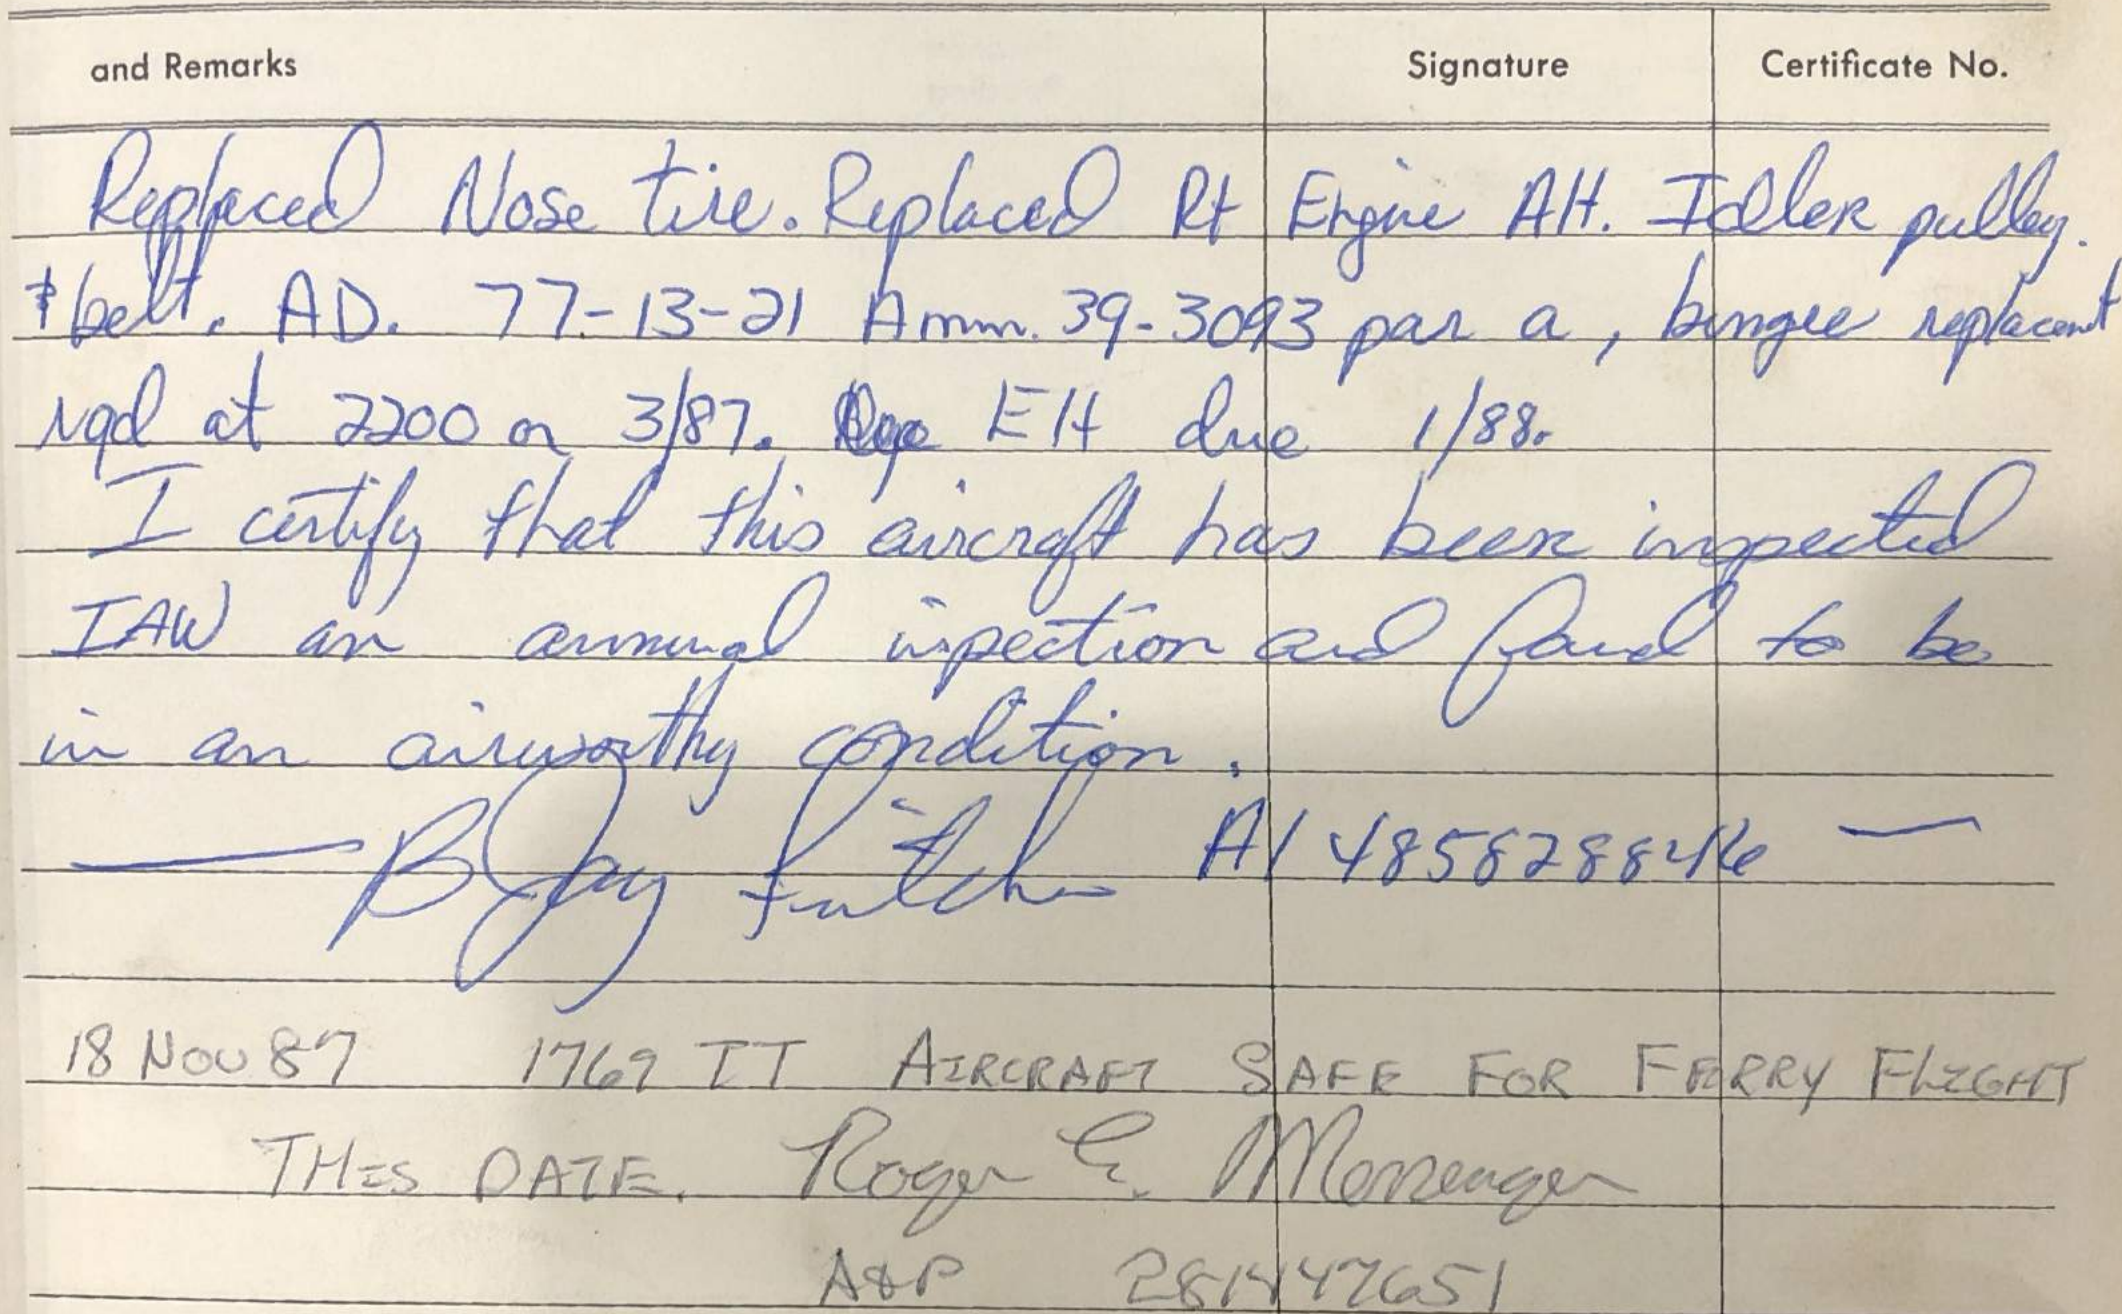 and Remarks Signature Certificate No.
Replaced Nose tire. Replaced Rt Engine Alt. Idler pulley.
& belt. AD. 77-13-21 Amm. 39-3093 par a, bungee replacent
rqd at 2200 or 3/87. EH due 1/88.
I certify that this aircraft has been inspected
IAW an annual inspection and found to be
in an airworthy condition.
B Jay AI 485828846 —
18 Nov 87 1769 TT AIRCRAFT SAFE FOR FERRY FLIGHT
THIS DATE. Roger E. Messenger
A&P 281447651